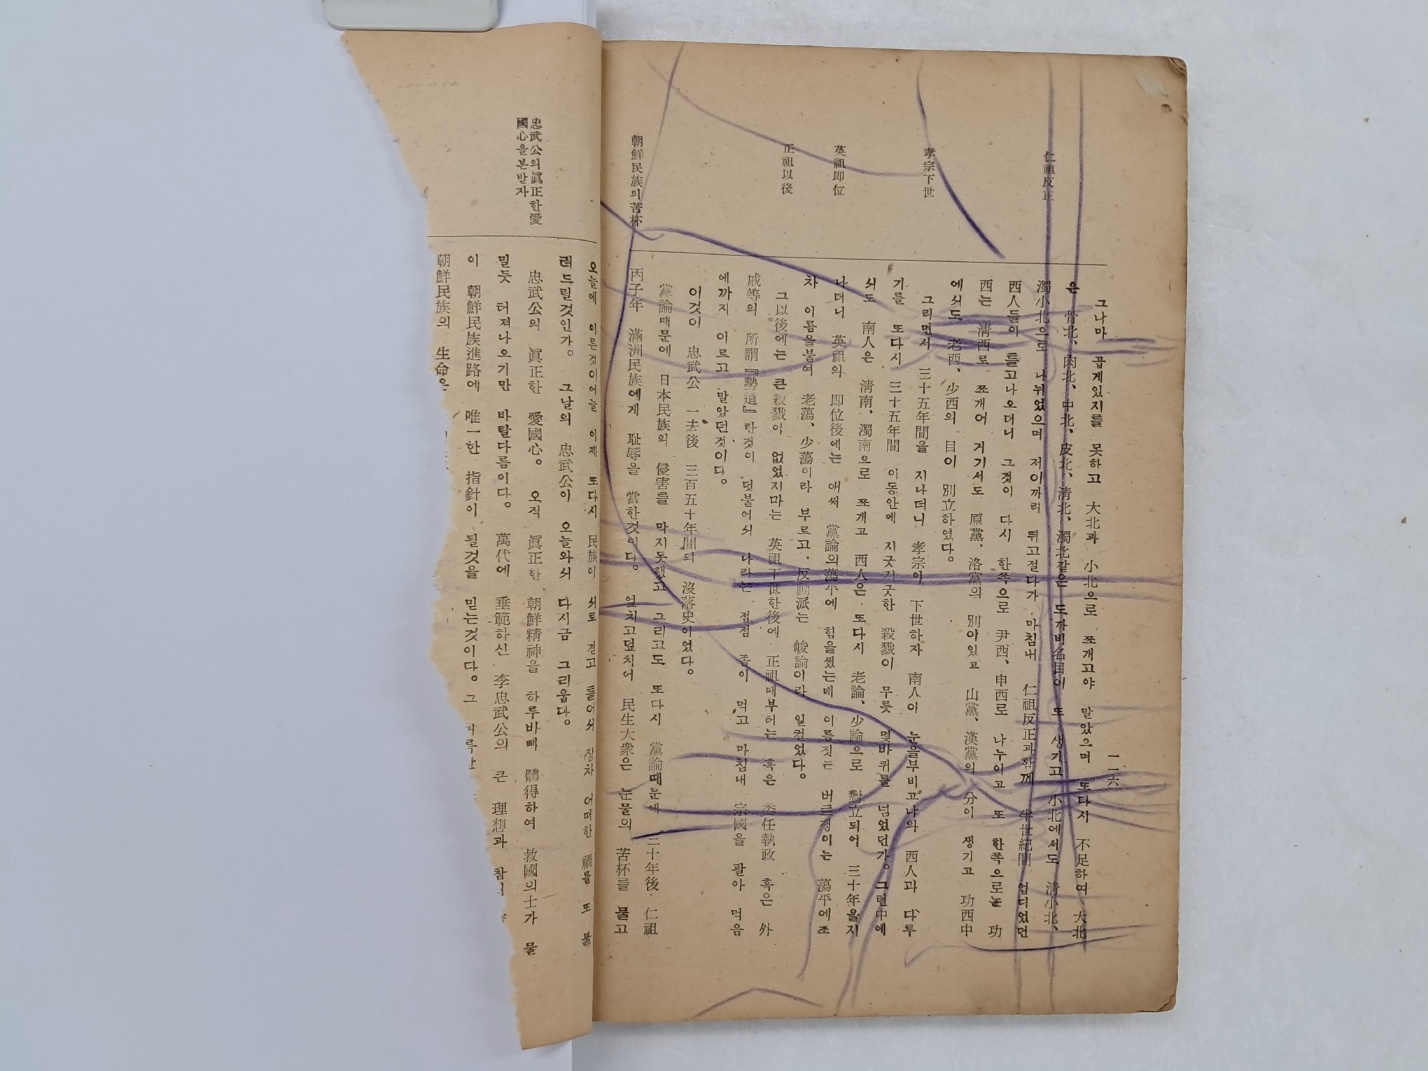 一一六
仁祖反正
孝宗下世
英祖即位
正祖以後
朝鮮民族의 苦杯
그나마 곱게있지를 못하고 大北과 小北으로 쪼개고야 말았으며 또다시 不足하여 大北
은 骨北、肉北、中北、皮北、淸北、濁北같은 도까비名目이 또 생기고 小北에서도 淸小北、
濁小北으로 나뉘었으며 저이끼리 뛰고절다가 마침내 仁祖反正과함께 半世紀間 엎디었던
西人들이 들고나오더니 그것이 다시 한쪽으로 尹西、申西로 나누이고 또 한쪽으로는 功
西는 淸西로 쪼개어 거기서도 原黨、洛黨의 別이있고 山黨、漢黨의 分이 생기고 功西中
에서도 老西、少西의 目이 別立하였다。
그리면서 三十五年間을 지나더니 孝宗이 下世하자 南人이 눈을부비고나와 西人과 다투
기를 또다시 三十五年間 이동안에 지긋지긋한 殺戮이 무릇 몇바퀴를 넘었던가。그런中에
서도 南人은 淸南、濁南으로 쪼개고 西人은 또다시 老論、少論으로 對立되어 三十年을지
나더니 英祖의 即位後에는 애써 黨論의蕩平에 힘을썼는데 이름짓는 버르쟁이는 蕩平에조
차 이름을붙여 老蕩、少蕩이라 부르고、反動派는 峻論이라 일컬었다。
그以後에는 큰殺戮이 없었지마는 英祖下世한後에 正祖때부터는 혹은 委任執政 혹은 外
戚等의 所謂『勢道』란것이 덧붙어서 나라는 점점 좀이 먹고 마침내 宗國을 팔아 먹음
에까지 이르고 말았던것이다。
이것이 忠武公 一去後 三百五十年間의 沒落史이었다。
黨論때문에 日本民族의 侵害를 막지못했고 그리고도 또다시 黨論때문에 三十年後 仁祖
丙子年 滿洲民族에게 耻辱을 當한것이다。 엎치고덮치어 民生大衆은 눈물의 苦杯를 물고
忠武公의 眞正한愛
國心을본받자
오늘에 이른것이어늘 이제 또다시 民族이 서로 겯고 틀어서 장차 어떠한 禍를 또 불
러드릴것인가。 그날의 忠武公이 오늘와서 다시금 그리웁다。
忠武公의 眞正한 愛國心。 오직 眞正한 朝鮮精神을 하루바삐 體得하여 救國의士가 물
밀듯 터져나오기만 바랄다름이다。 萬代에 垂範하신 李忠武公의 큰 理想과
이 朝鮮民族進路에 唯一한 指針이 될것을 믿는것이다。그
朝鮮民族의 生命은